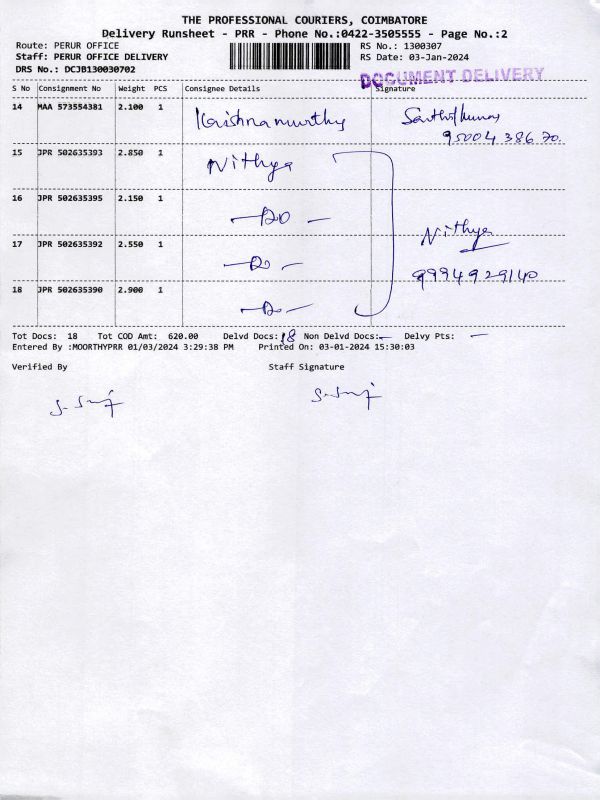 THE PROFESSIONAL COURIERS, COIMBATORE
Delivery Runsheet - PRR - Phone No.:0422-3505555 - Page No.:2
Route: PERUR OFFICE RS No.: 1300307
Staff: PERUR OFFICE DELIVERY RS Date: 03-Jan-2024
DRS No.: DCJB130030702
DOCUMENT DELIVERY
S No Consignment No Weight PCS Consignee Details Signature
14 MAA 573554381 2.100 1 Krishnamurthy Santhoshkumar
95004 386 70.
15 JPR 502635393 2.850 1 Nithya
16 JPR 502635395 2.150 1 -DO-
17 JPR 502635392 2.550 1 -Do- Nithya
9994929140
18 JPR 502635390 2.900 1 -Do-
Tot Docs: 18 Tot COD Amt: 620.00 Delvd Docs: 18 Non Delvd Docs:- Delvy Pts: -
Entered By :MOORTHYPRR 01/03/2024 3:29:38 PM Printed On: 03-01-2024 15:30:03
Verified By Staff Signature